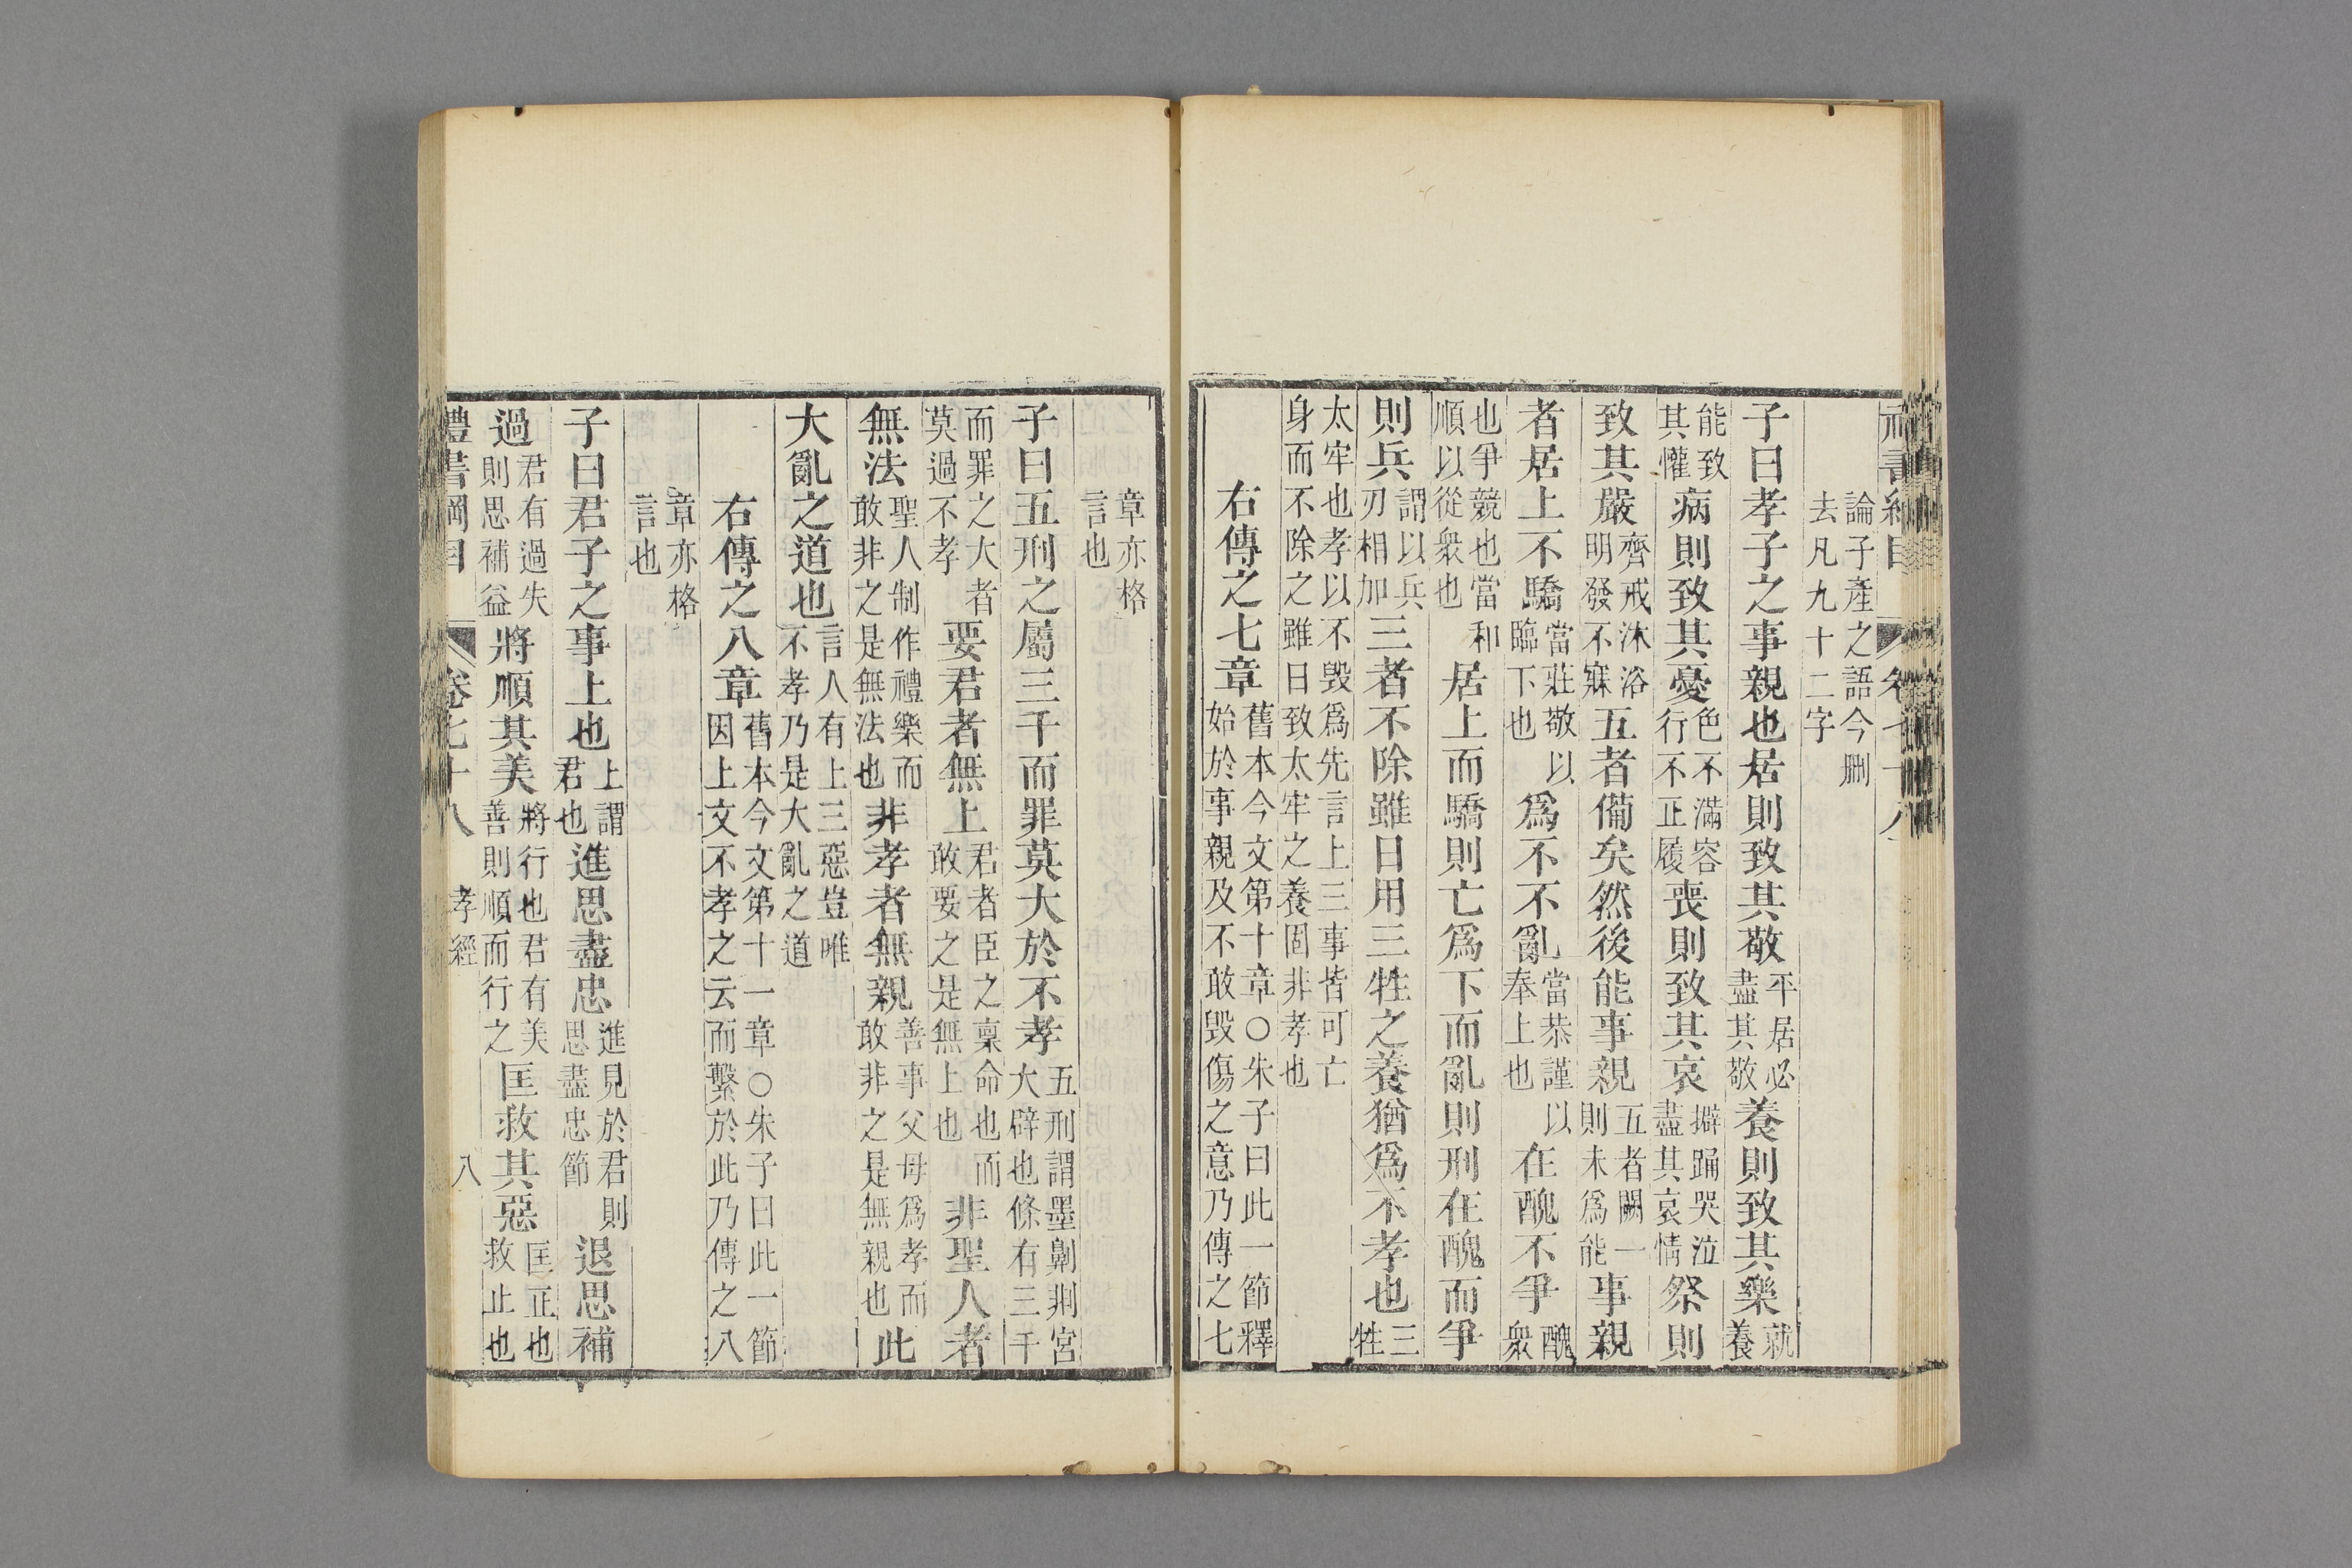 論子產之語今刪去凡九十二字
子曰孝子之事親也居則致其敬平居必盡其敬養則致其樂就養
能致其懽病則致其憂色不滿容行不正履喪則致其哀擗踊哭泣盡其哀情祭則
致其嚴齊戒沐浴明發不寐五者備矣然後能事親五者闕一則未爲能事親
者居上不驕當莊敬以臨下也爲不不亂當恭謹以奉上也在醜不爭醜衆
也爭競也當和順以從衆也居上而驕則亡爲下而亂則刑在醜而爭
則兵謂以兵刃相加三者不除雖日用三牲之養猶爲不孝也三牲
太牢也孝以不毀爲先言上三事皆可亡身而不除之雖日致太牢之養固非孝也
右傳之七章舊本今文第十章○朱子曰此一節釋始於事親及不敢毀傷之意乃傳之七
章亦格言也
子曰五刑之屬三千而罪莫大於不孝五刑謂墨劓剕宮大辟也條有三千
而罪之大者莫過不孝要君者無上君者臣之稟命也而敢要之是無上也非聖人者
無法聖人制作禮樂而敢非之是無法也非孝者無親善事父母爲孝而敢非之是無親也此
大亂之道也言人有上三惡豈唯不孝乃是大亂之道
右傳之八章舊本今文第十一章○朱子曰此一節因上文不孝之云而繫於此乃傳之八
章亦格言也
子曰君子之事上也上謂君也進思盡忠進見於君則思盡忠節退思補
過君有過失則思補益將順其美將行也君有美善則順而行之匡救其惡匡正也救止也
禮書綱目 卷七十八 孝經 八